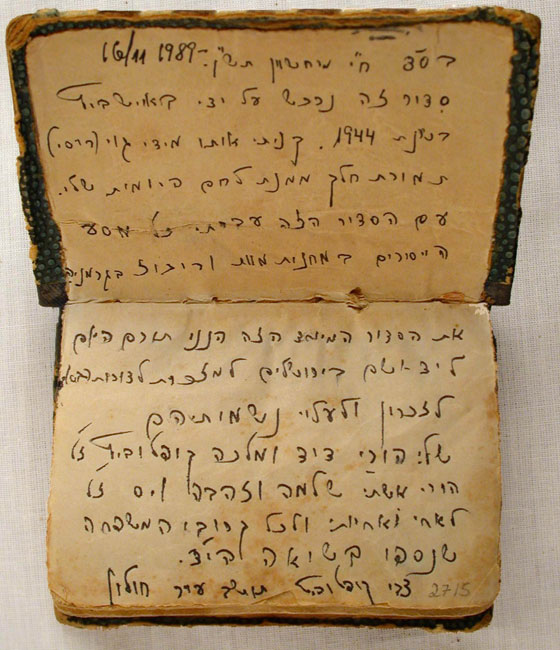 בס"ד ח"י מרחשון תש"ן. 16/11 1989-
סדור זה נרכש על ידי באוישביץ
בשנת 1944. קניתי אותו מידי גוי (רוסי)
תמורת חלק ממנת לחם היומית שלי.
עם הסדור הזה עברתי כל מסע
הייסורים במחנות מוות וריכוז בגרמניה
את הסדור המיוחד הזה הנני תורם היום
ליד ושם בירושלים למזכרת לדורות הבאים
לזכרון ולעלוי נשמותיהם
של: הורי דוד ומלכה קופלוביץ ז"ל
הורי אשתי שלמה וזהבה ויס ז"ל
לאחי ואחיותי ולכל קרובי המשפחה
שנספו בשואה הי"ד.
צבי קופלוביץ תושב עיר חולון 2715